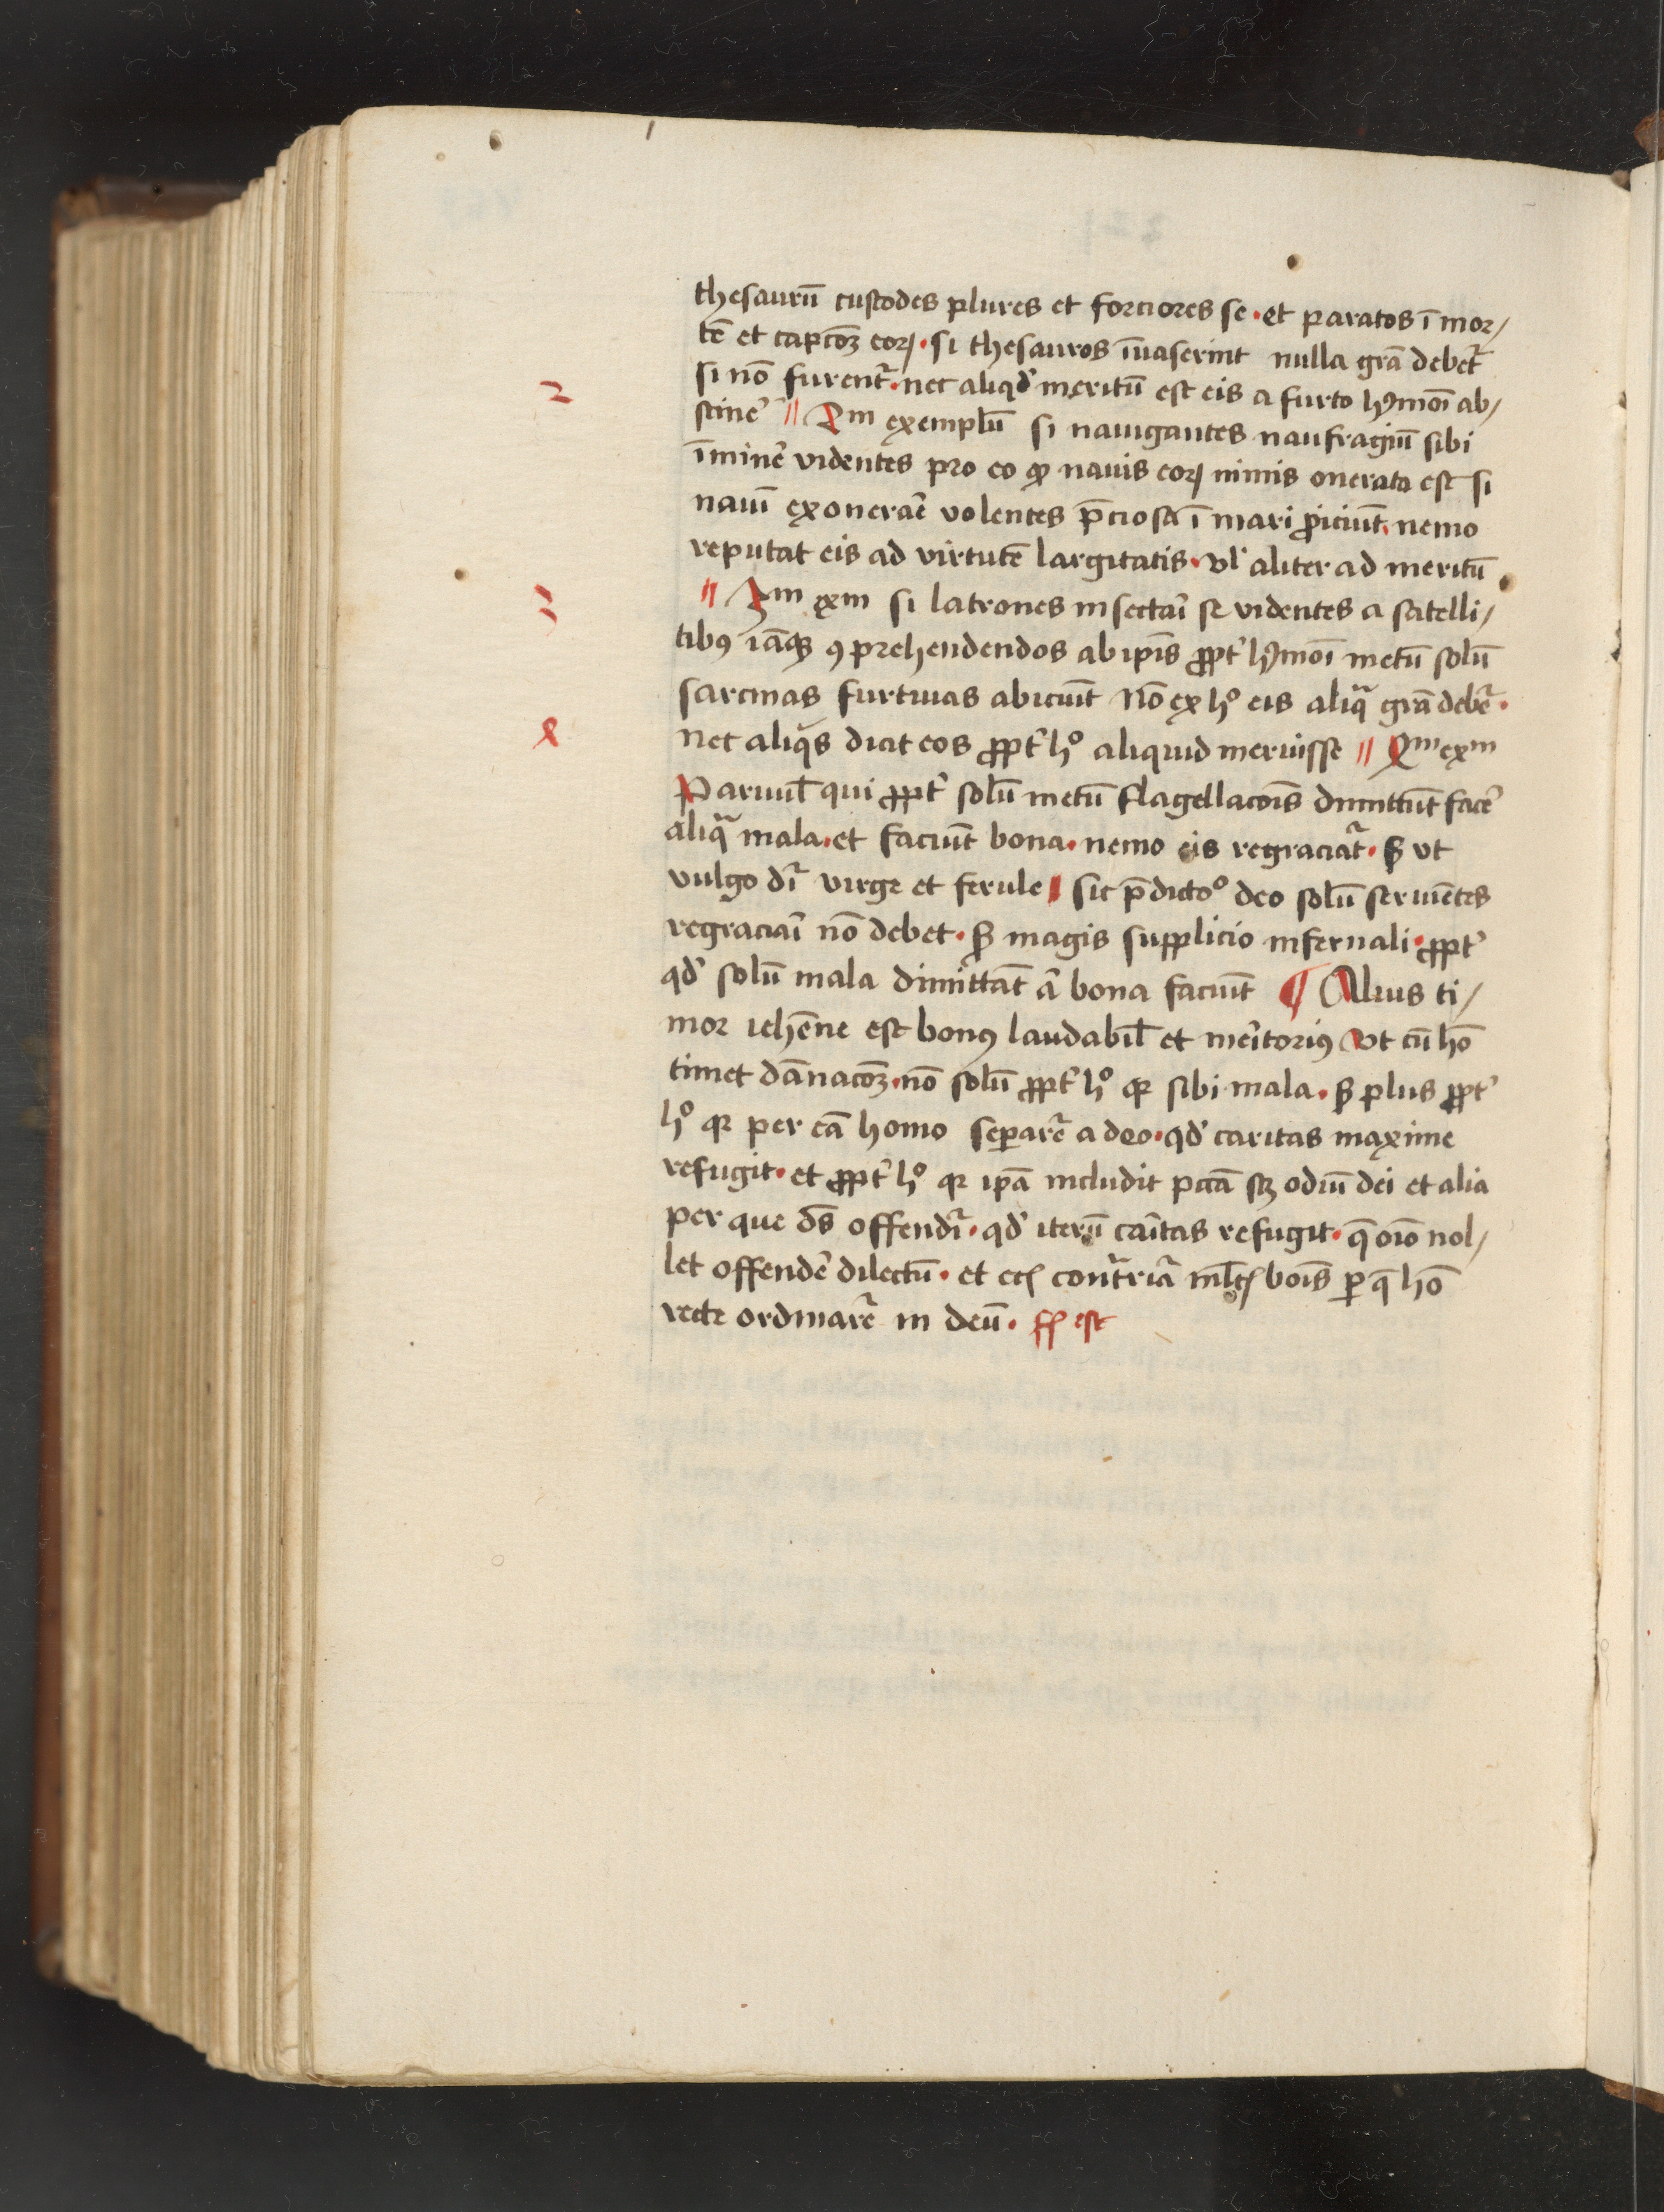 thesaurū custodes plures et forciores se · et paratos ī mor/
tē et capcōȝ eoꝝ · si thesauros īuaserint nulla grā debet᷑
si nō furent᷑ · nec aliqd' meritū est eis a furto hꝰmōi ab/
stine' // 2m exemplū si nauigantes naufragiū sibi
īmine' videntes pro eo ꝙ nauis eoꝝ nimis onerata est si
nauī exonerae᷑ volentes p̄ciosa ī mari ꝓiciūt · nemo
reputat eis ad virtutē largitatis · vl' aliter ad meritū
// 3m exm si latrones insectai᷑ se videntes a satelli/
tibꝰ iāqȝ ꝯprehendendos ab ipīs ꝓpt' hꝰmōi metū solū
sarcinas furtiuas abiciūt nō ex hº eis aliqͣ grā debet᷑ ·
nec aliqͥs dicit eos ꝓpt' hº aliquid meruisse // 4m exm
Paruul̄ qui ꝓpt' solū metū flagellacōis dimittūt face'
aliqͣ mala · et faciūt bona · nemo eis regraciat᷑ · sꝫ vt
vulgo dr̄ virge et ferule // sic p̄dictº deo solū seruiētes
regraciai᷑ nō debet · sꝫ magis supplicio infernali · ꝓpt'
qd' solū mala dimittāt a᷑ bona faciūt ¶ Alius ti/
mor iehēne est bonꝰ laudabil̄ et meitoriꝰ vt cū hō
timet dānacōȝ · nō solū ꝓpt' hº qꝛ sibi mala · sꝫ plus ꝓpt'
hº qꝛ per eā homo separet᷑ a deo · qd' caritas maxime
refugit · et ꝓpt' hº qꝛ ipā includit pctā sȝ odiū dei et alia
per que dš offendit᷑ · qd' iterū caitas refugit · q̄ oīo nol/
let offende' dilectū · et contrariā bōis ꝑ q̄ hō
recte ordinaret᷑ in deū · est
2
3
4